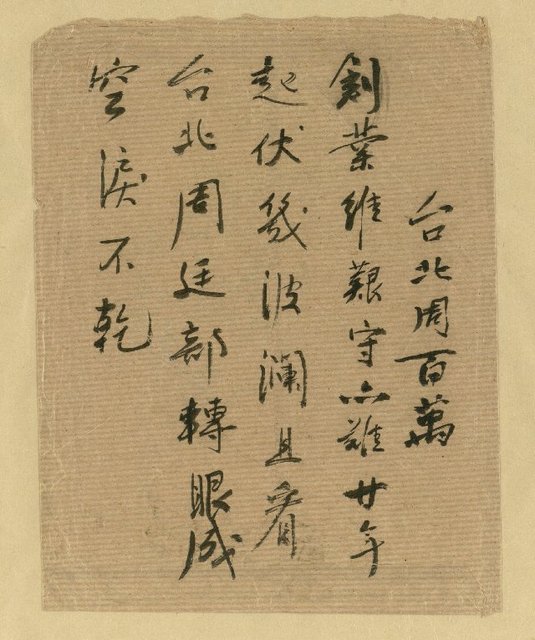 台北周百萬
創業維艱守亦難廿年
起伏幾波瀾且看
台北周廷部轉眼成
空淚不乾